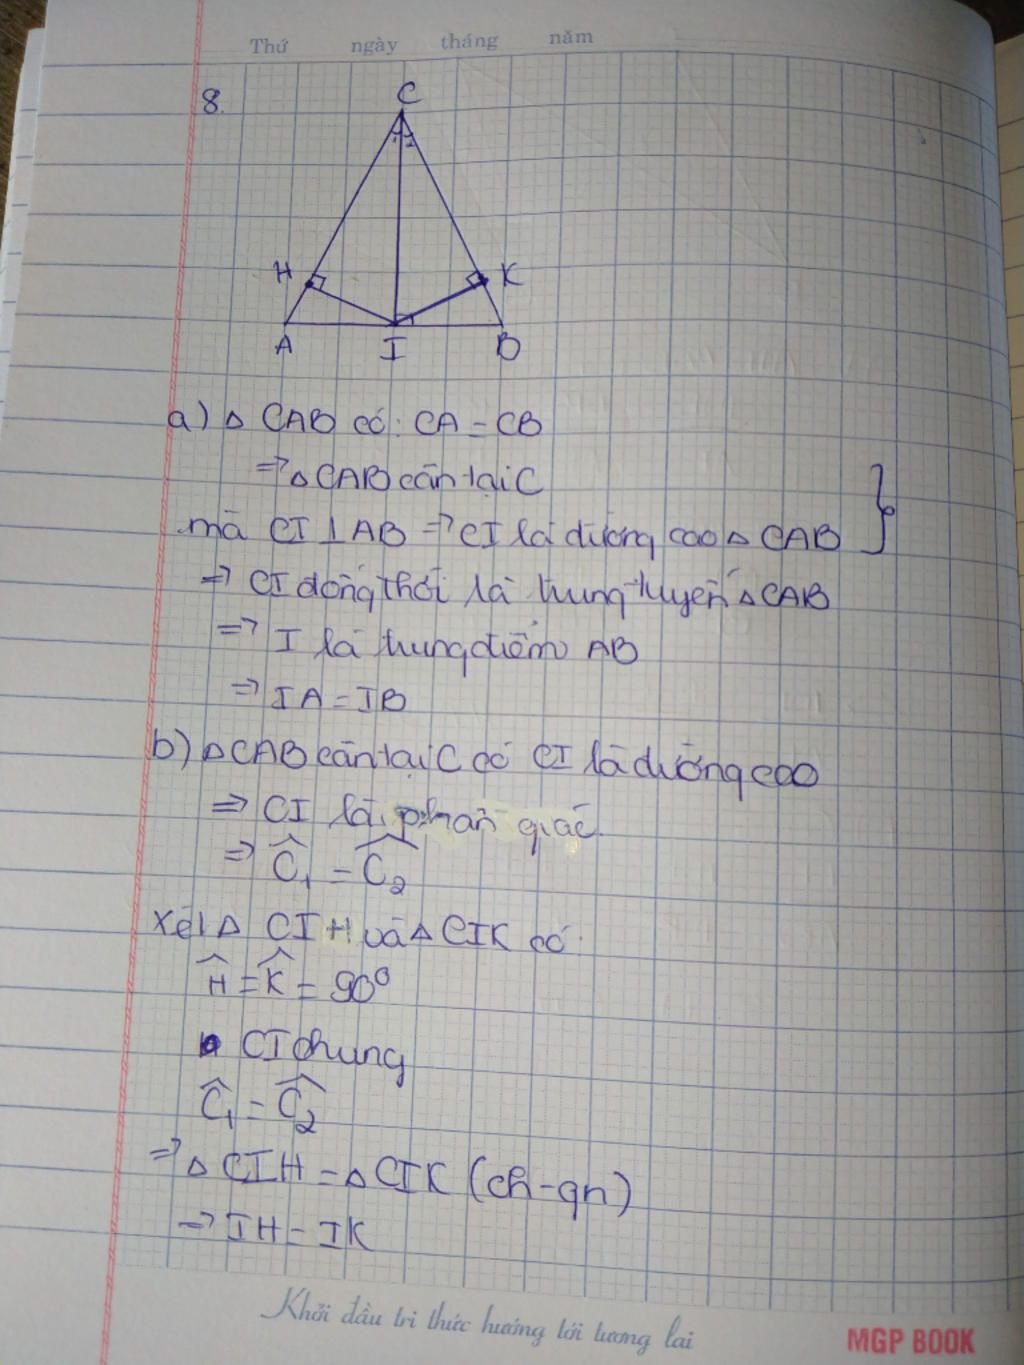 Thứ ngày tháng năm
8.
C
1 2
H K
A I B
a) △ CAB có: CA = CB
⇒ △ CAB cân tại C
mà CI ⊥ AB ⇒ CI là đường cao △ CAB }
⇒ CI đồng thời là trung tuyến △ CAB
⇒ I là trung điểm AB
⇒ IA = IB
b) △ CAB cân tại C có CI là đường cao
⇒ CI là phân giác
⇒ Ĉ₁ = Ĉ₂
Xét △ CIH và △ CIK có:
Ĥ = K̂ = 90⁰
CI chung
Ĉ₁ = Ĉ₂
⇒ △ CIH = △ CIK (ch-gn)
⇒ IH = IK
Khởi đầu tri thức hướng tới tương lai
MGP BOOK